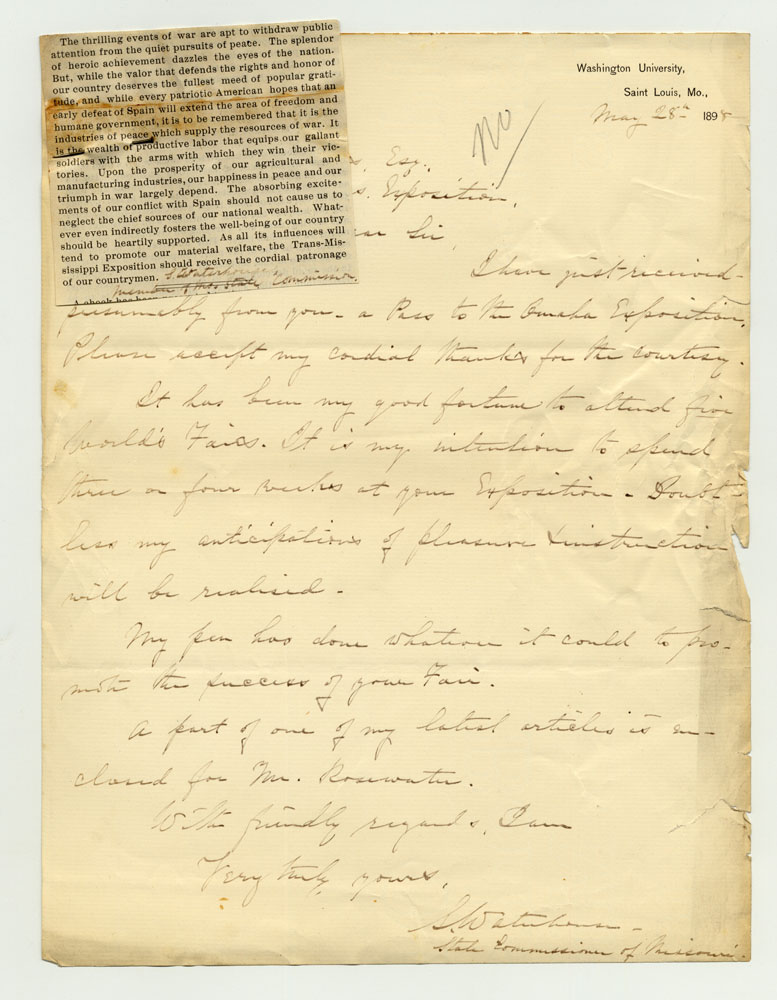 The thrilling events of war are apt to withdraw public
attention from the quiet pursuits of peace. The splendor
of heroic achievement dazzles the eyes of the nation.
But, while the valor that defends the rights and honor of
our country deserves the fullest meed of popular grati-
tude, and while every patriotic American hopes that an
early defeat of Spain will extend the area of freedom and
humane government, it is to be remembered that it is the
industries of peace which supply the resources of war. It
is the wealth of productive labor that equips our gallant
soldiers with the arms with which they win their vic-
tories. Upon the prosperity of our agricultural and
manufacturing industries, our happiness in peace and our
triumph in war largely depend. The absorbing excite-
ments of our conflict with Spain should not cause us to
neglect the chief sources of our national wealth. What-
ever even indirectly fosters the well-being of our country
should be heartily supported. As all its influences will
tend to promote our material welfare, the Trans-Mis-
sissippi Exposition should receive the cordial patronage
of our countrymen. S. Waterhouse
member of Mo. State Commission.
Washington University,
Saint Louis, Mo.,
May 28th 1898
No
Esq.
Exposition,
Sir,
I have just received -
presumably from you - a Pass to the Omaha Exposition.
Please accept my cordial thanks for the courtesy.
It has been my good fortune to attend five
World's Fairs. It is my intention to spend
three or four weeks at your Exposition - Doubt-
less my anticipations of pleasure & instruction
will be realised -
My pen has done whatever it could to pro-
mote the success of your Fair.
A part of one of my latest articles is en-
closed for Mr. Rosewater.
With friendly regards, I am
Very truly yours,
S. Waterhouse -
State Commissioner of Missouri.